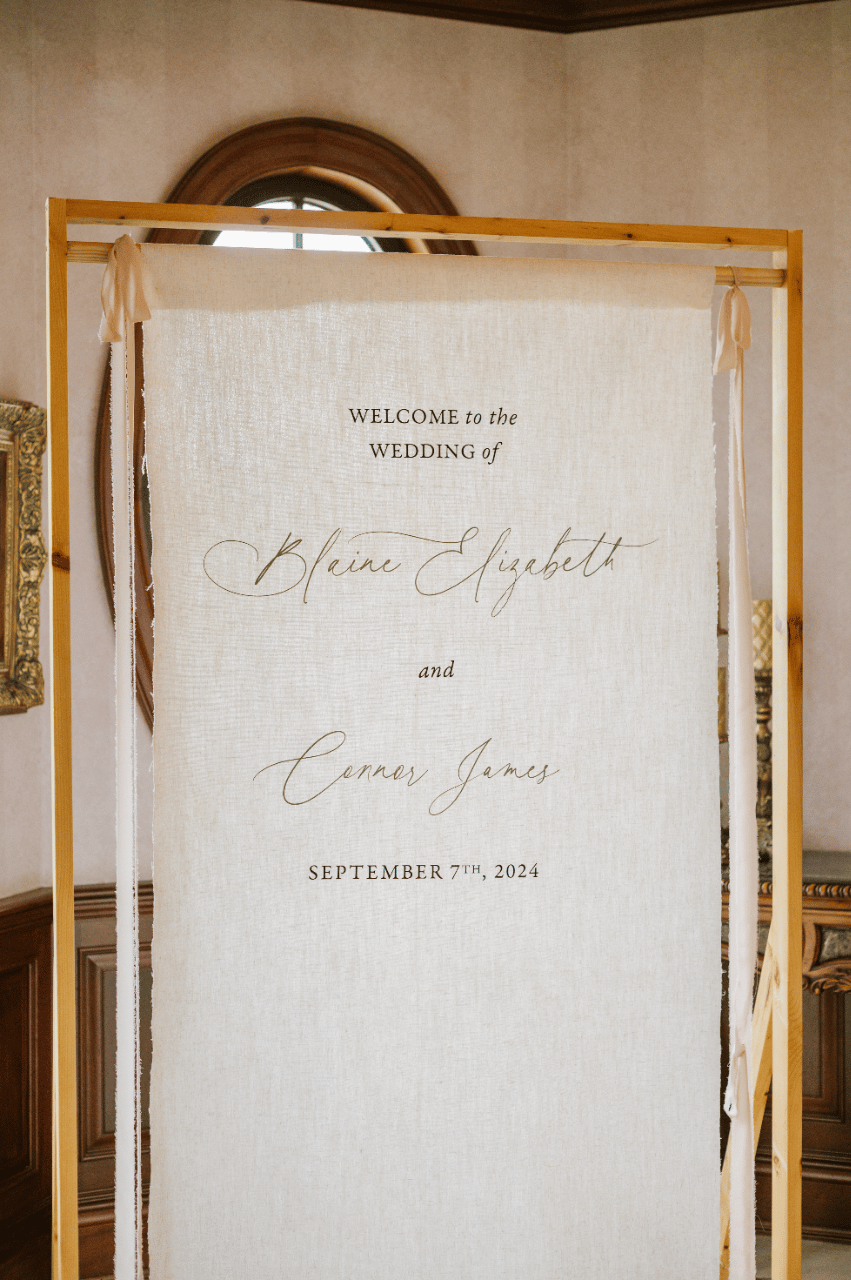 WELCOME to the
WEDDING of
Blaine Elizabeth
and
Connor James
SEPTEMBER 7TH, 2024